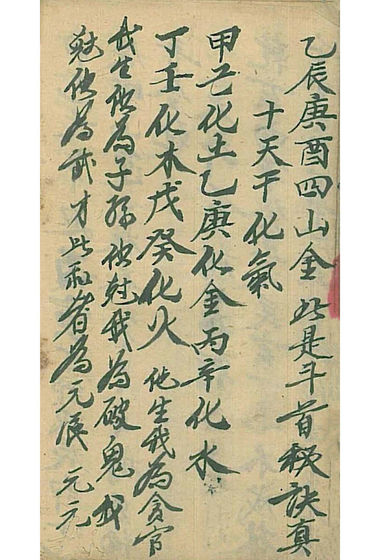 乙辰庚酉四山金 此是斗首秘訣真
十天干化氣
甲己化土乙庚化金丙辛化水
丁壬化木戊癸化火 他生我為貪官
我生他為子孫他尅我為破鬼我
尅他為武才比和者為元辰 元元